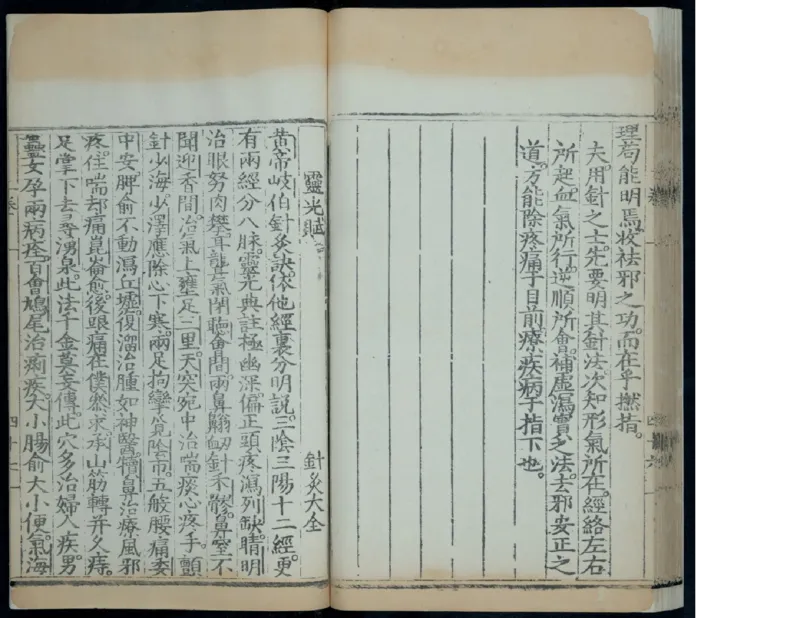 理苟能明焉收祛邪之功而在乎撚指。
夫用針之士先要明其針法次知形氣所在經絡左右
所起血氣所行逆順所會補虛瀉實之法去邪安正之
道方能除疼痛于目前療疾病于指下也。
靈光賦
針灸大全
黄帝岐伯針灸訣依他經裏分明說三陰三陽十二經更
有兩經分八脉靈光典註極幽深偏正頭疼瀉列缺睛明
治眼努肉攀耳聾氣閉聽會間兩鼻鼽衂針禾髎鼻窒不
聞迎香間治氣上壅足三里天突宛中治喘痰心疼手顫
針少海少澤應除心下寒兩足拘攣覓陰市五般腰痛委
中安脾俞不動瀉丘墟復溜治腫如神醫犢鼻治療風邪
疼住喘却痛崑崙愈後跟痛在僕參求承山筋轉并久痔
足掌下去尋湧泉此法千金莫妄傳此穴多治婦人疾男
蠱女孕兩病痊百會鳩尾治痢疾大小腸俞大小便氣海